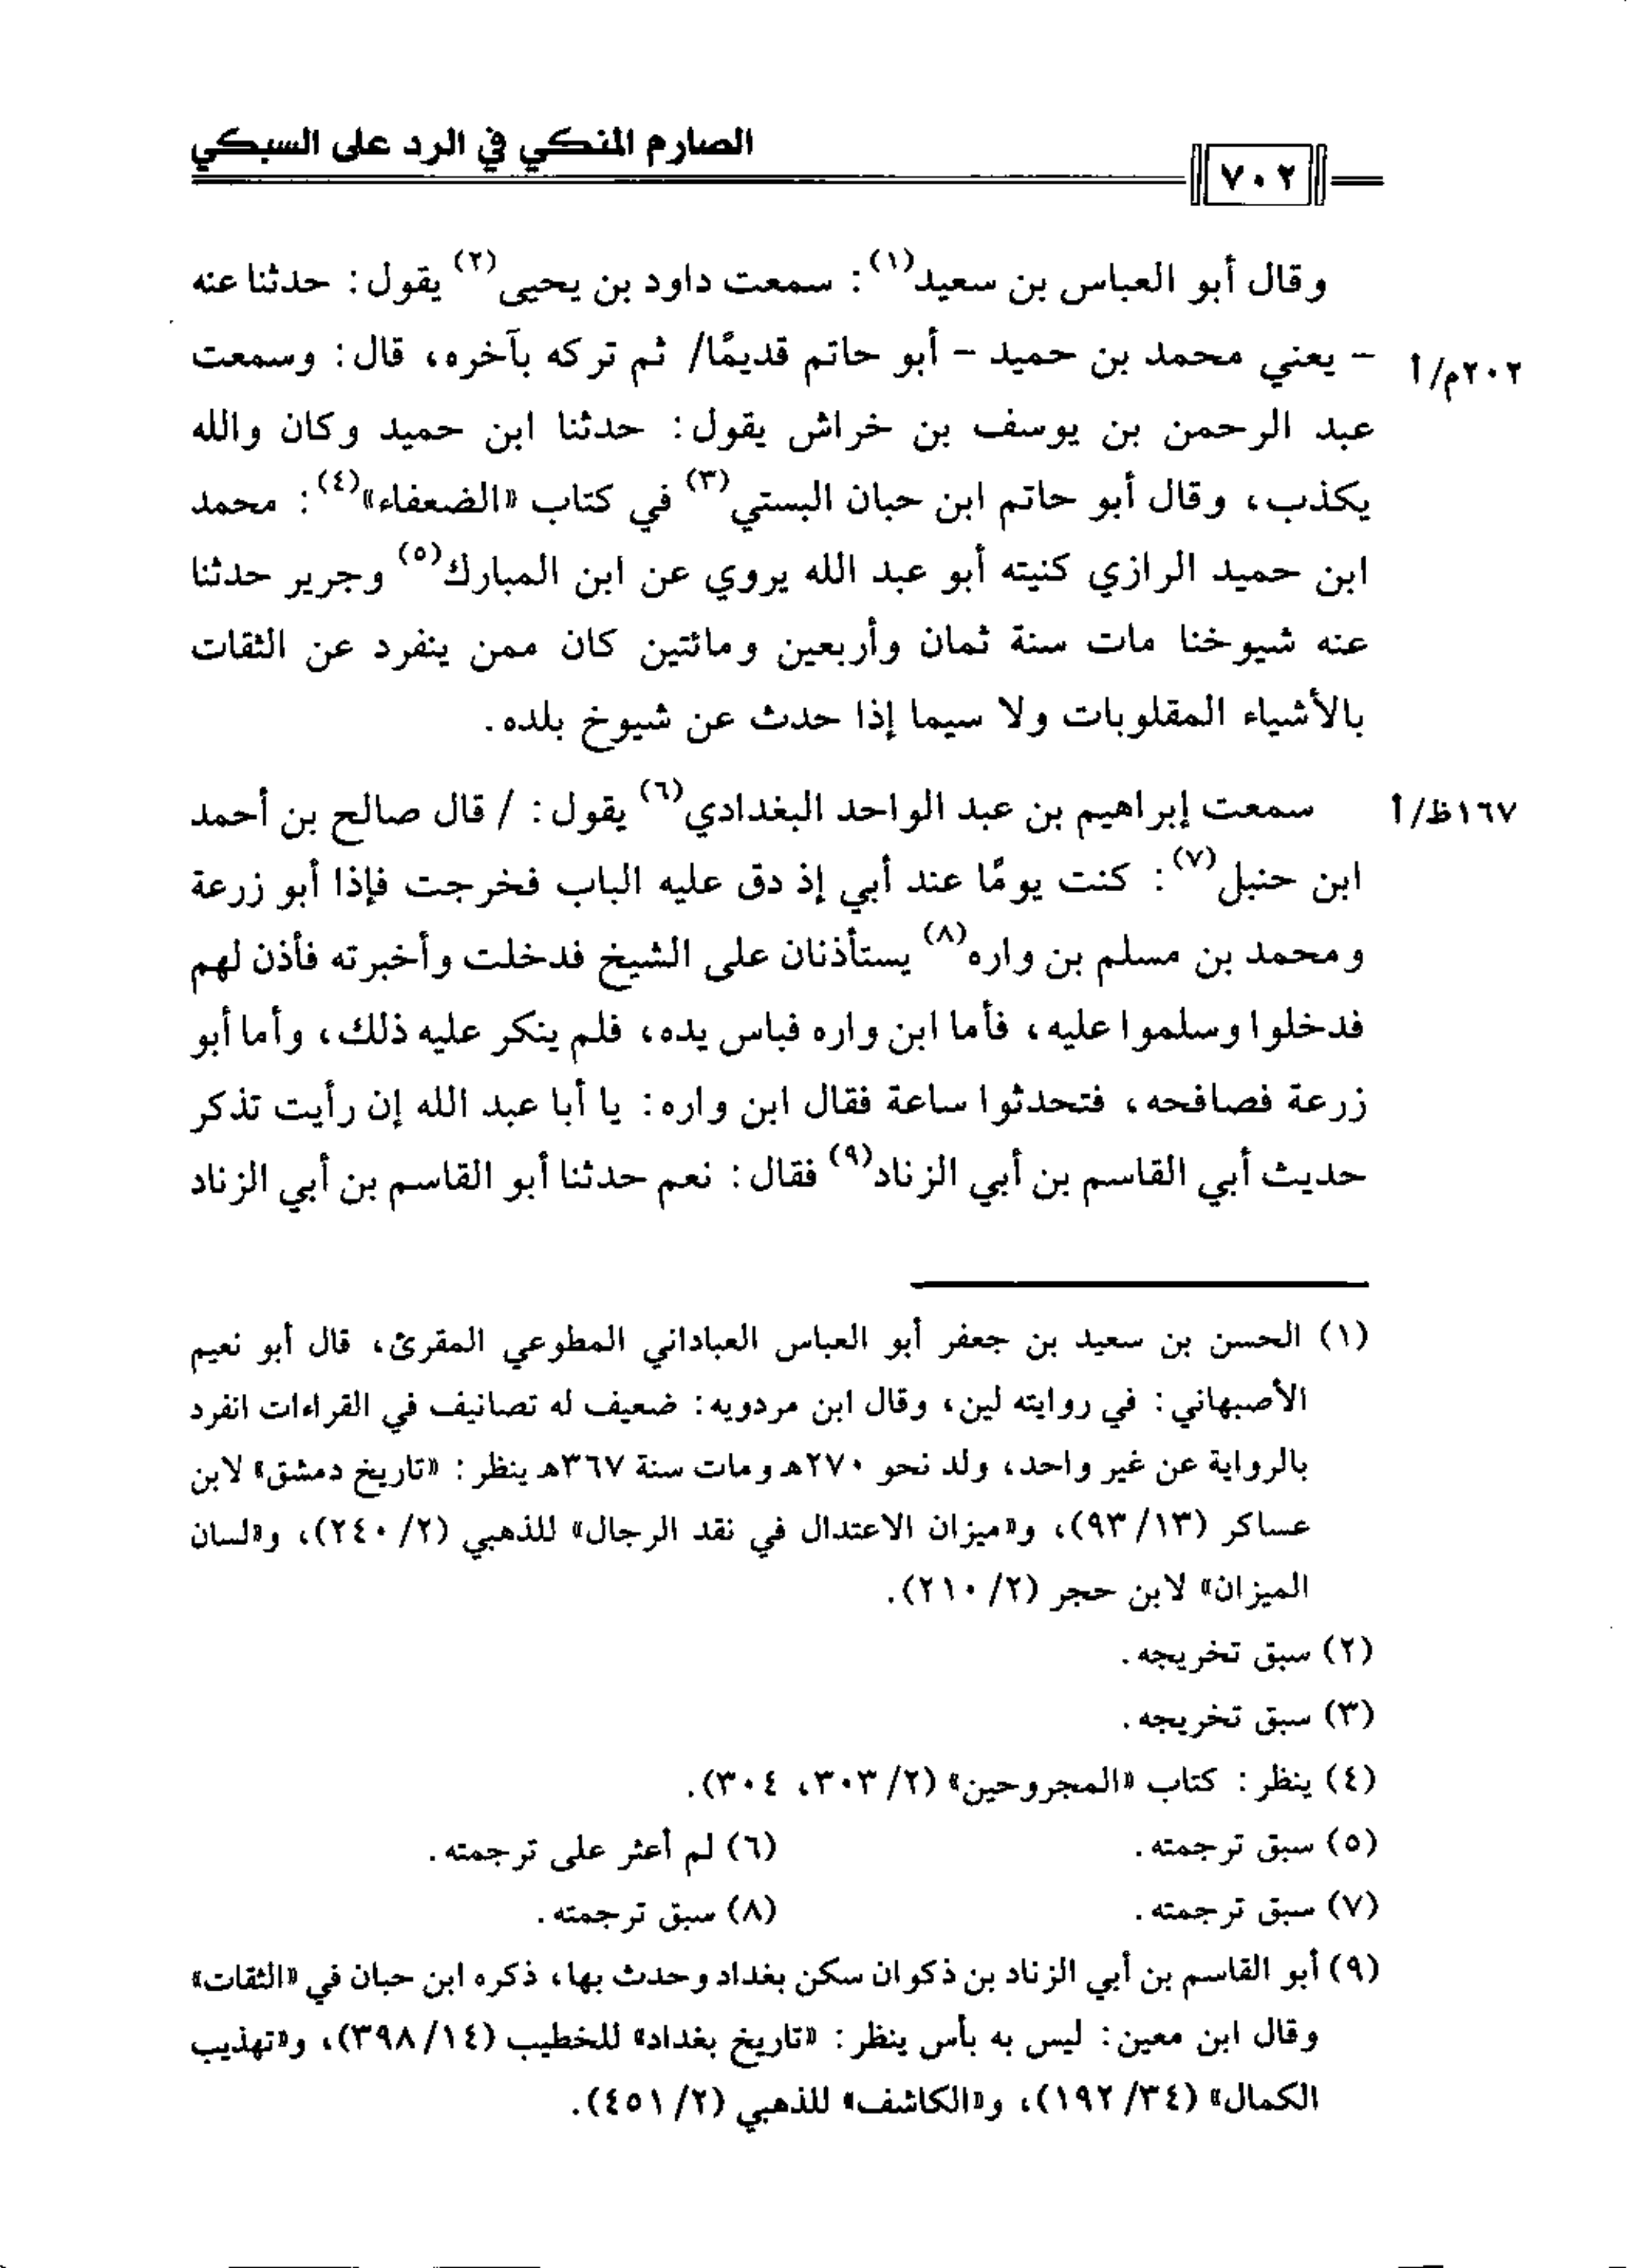 الصارم المنكي في الرد على السبكي
٧٠٢
وقال أبو العباس بن سعيد(١): سمعت داود بن يحيى(٢) يقول: حدثنا عنه
- يعني محمد بن حميد - أبو حاتم قديمًا/ ثم تركه بآخره، قال: وسمعت
٢٠٢م/أ
عبد الرحمن بن يوسف بن خراش يقول: حدثنا ابن حميد وكان والله
يكذب، وقال أبو حاتم ابن حبان البستي(٣) في كتاب «الضعفاء»(٤): محمد
ابن حميد الرازي كنيته أبو عبد الله يروي عن ابن المبارك(٥) وجرير حدثنا
عنه شيوخنا مات سنة ثمان وأربعين ومائتين كان ممن ينفرد عن الثقات
بالأشياء المقلوبات ولا سيما إذا حدث عن شيوخ بلده.
سمعت إبراهيم بن عبد الواحد البغدادي(٦) يقول: / قال صالح بن أحمد
١٦٧ظ/أ
ابن حنبل(٧): كنت يومًا عند أبي إذ دق عليه الباب فخرجت فإذا أبو زرعة
ومحمد بن مسلم بن واره(٨) يستأذنان على الشيخ فدخلت وأخبرته فأذن لهم
فدخلوا وسلموا عليه، فأما ابن واره فباس يده، فلم ينكر عليه ذلك، وأما أبو
زرعة فصافحه، فتحدثوا ساعة فقال ابن واره: يا أبا عبد الله إن رأيت تذكر
حديث أبي القاسم بن أبي الزناد(٩) فقال: نعم حدثنا أبو القاسم بن أبي الزناد
(١) الحسن بن سعيد بن جعفر أبو العباس العباداني المطوعي المقرئ، قال أبو نعيم
الأصبهاني: في روايته لين، وقال ابن مردويه: ضعيف له تصانيف في القراءات انفرد
بالرواية عن غير واحد، ولد نحو ٢٧٠هـ ومات سنة ٣٦٧هـ ينظر: «تاريخ دمشق» لابن
عساكر (١٣/ ٩٣)، و«ميزان الاعتدال في نقد الرجال» للذهبي (٢/ ٢٤٠)، و«لسان
الميزان» لابن حجر (٢/ ٢١٠).
(٢) سبق تخريجه.
(٣) سبق تخريجه.
(٤) ينظر: كتاب «المجروحين» (٢/ ٣٠٣، ٣٠٤).
(٥) سبق ترجمته. (٦) لم أعثر على ترجمته.
(٧) سبق ترجمته. (٨) سبق ترجمته.
(٩) أبو القاسم بن أبي الزناد بن ذكوان سكن بغداد وحدث بها، ذكره ابن حبان في «الثقات»
وقال ابن معين: ليس به بأس ينظر: «تاريخ بغداد» للخطيب (١٤/ ٣٩٨)، و«تهذيب
الكمال» (٣٤/ ١٩٢)، و«الكاشف» للذهبي (٢/ ٤٥١).